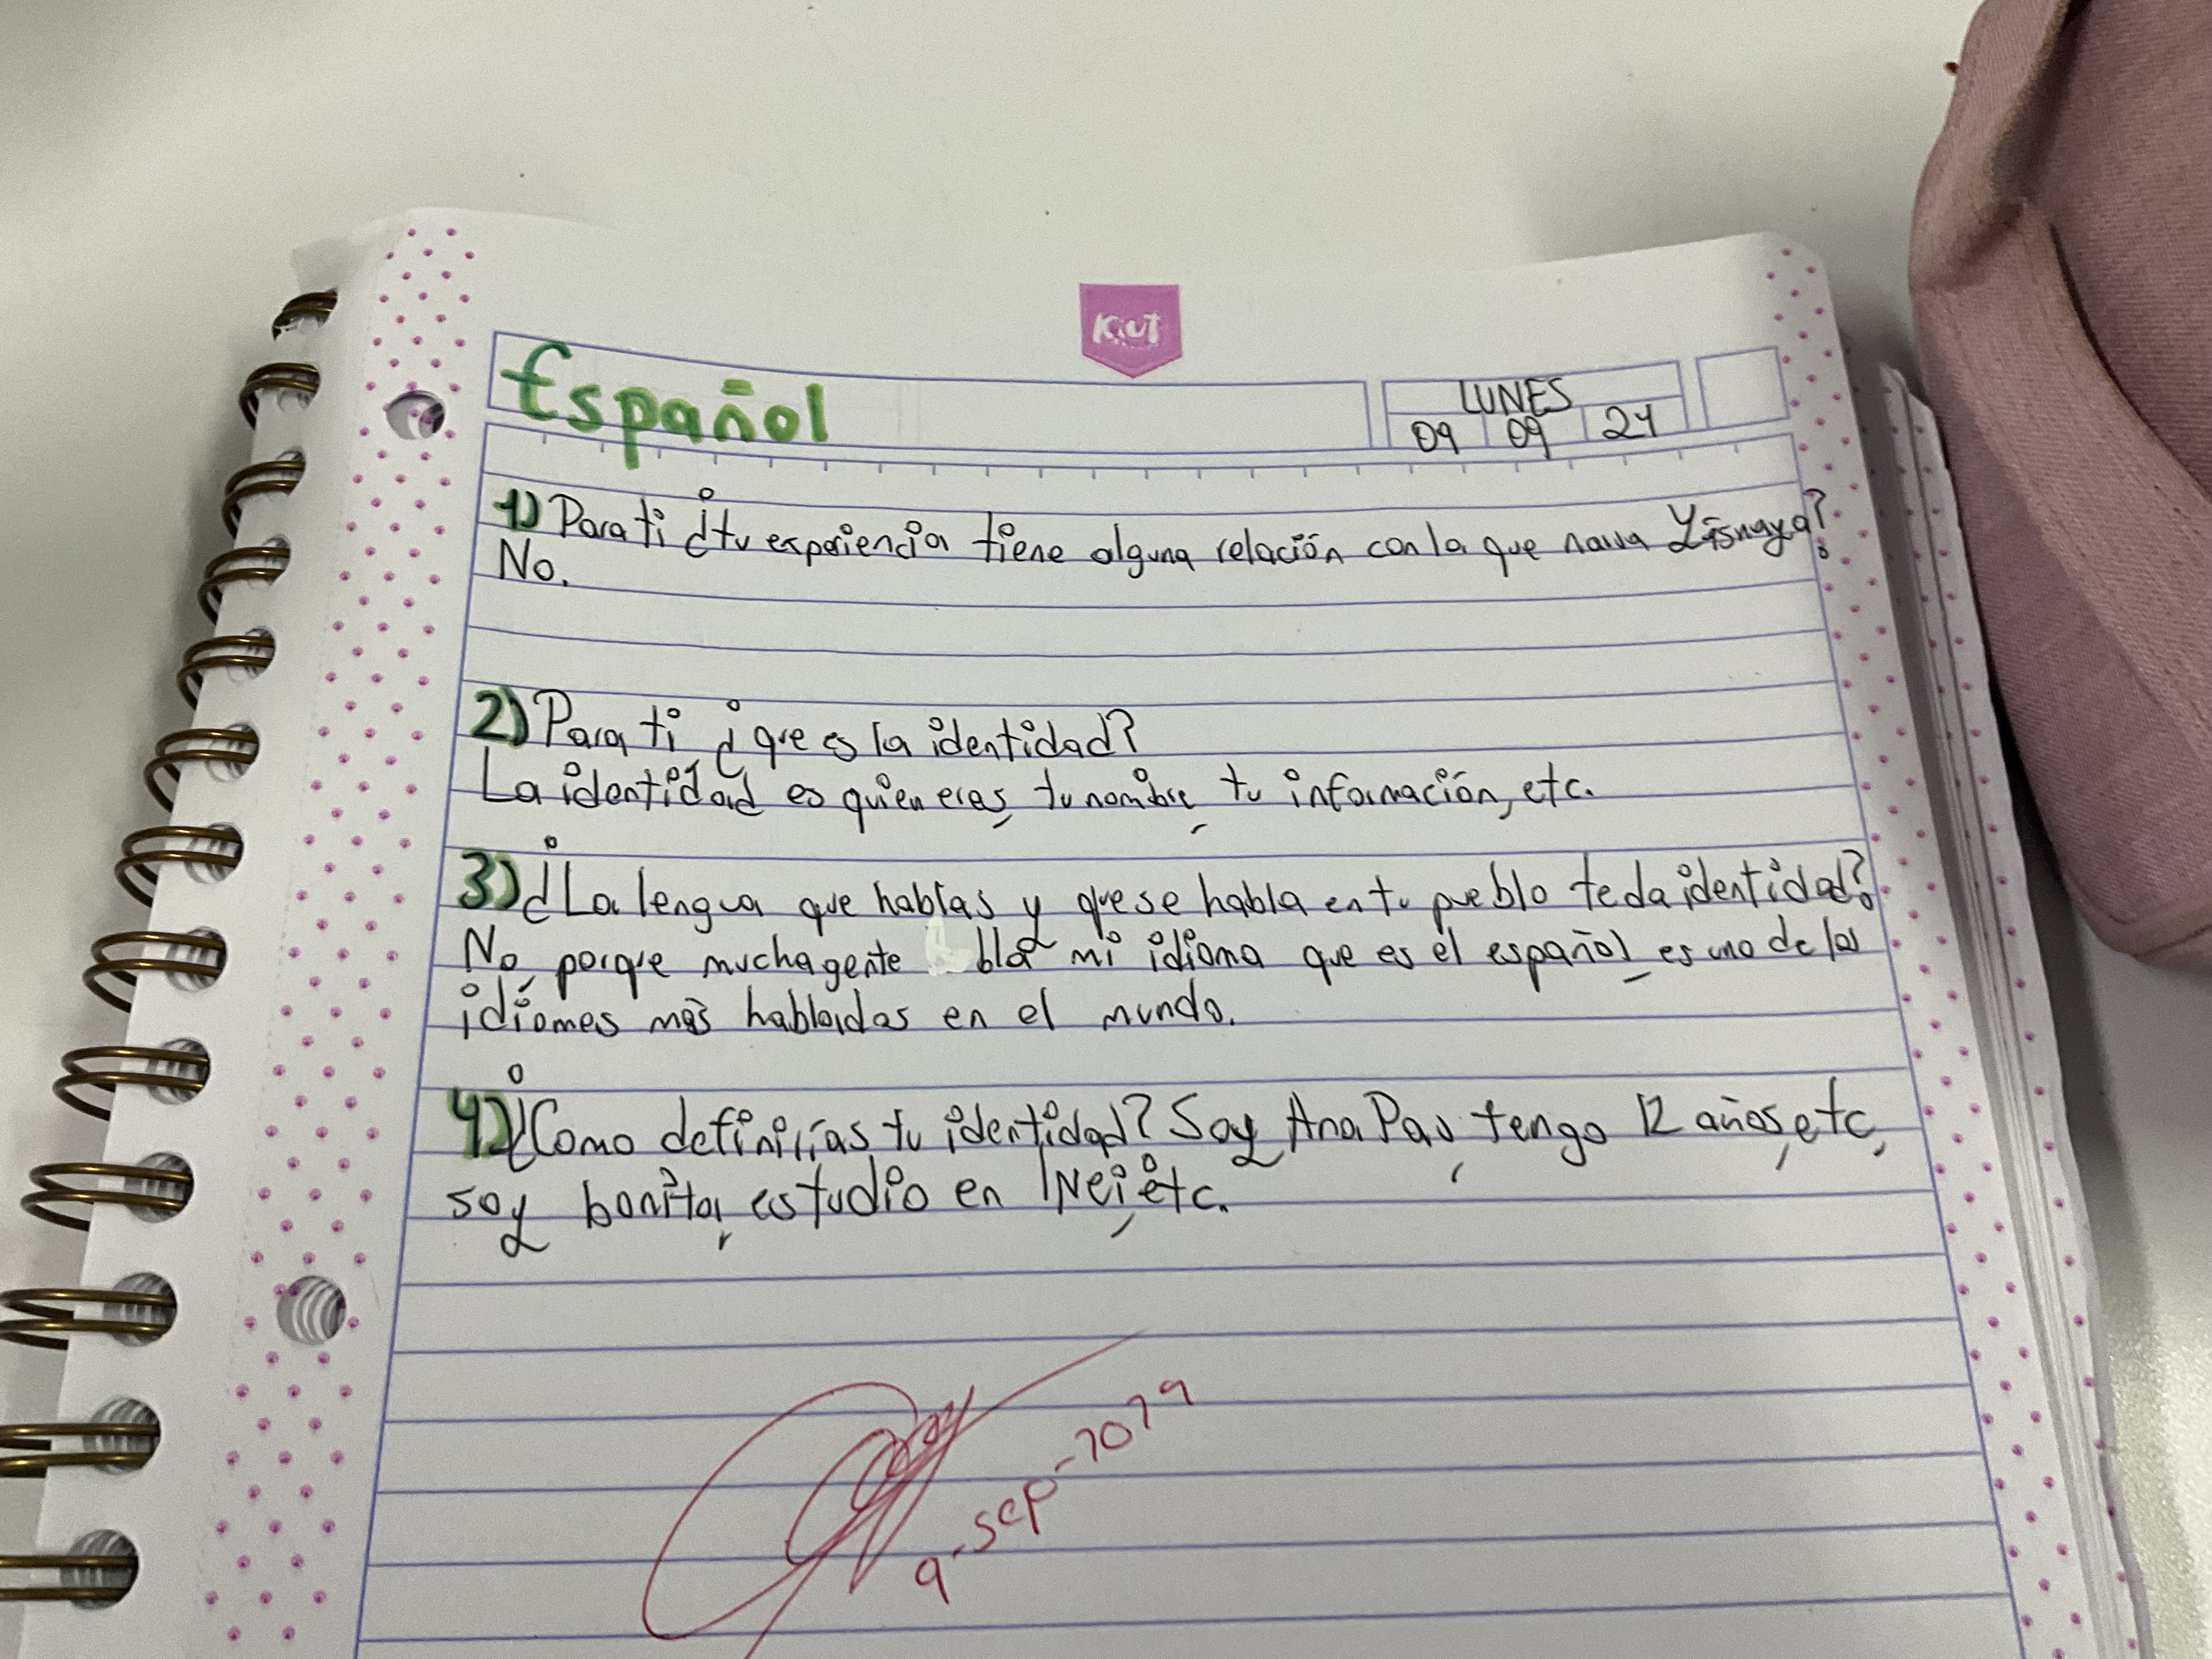 Kiut
Español
LUNES
09 09 24
1) Para ti ¿tu experiencia tiene alguna relación con la que narra Yásnaya?
No.
2) Para ti ¿que es la identidad?
La identidad es quien eres, tu nombre, tu información, etc.
3) ¿La lengua que hablas y que se habla en tu pueblo te da identidad?
No, porque mucha gente bla mi idioma que es el español, es uno de los
idiomes más hablados en el mundo.
4) ¿Como definirías tu identidad? Soy Ana Pau, tengo 12 años, etc,
soy bonita, estudio en INei, etc.
9-sep-2024